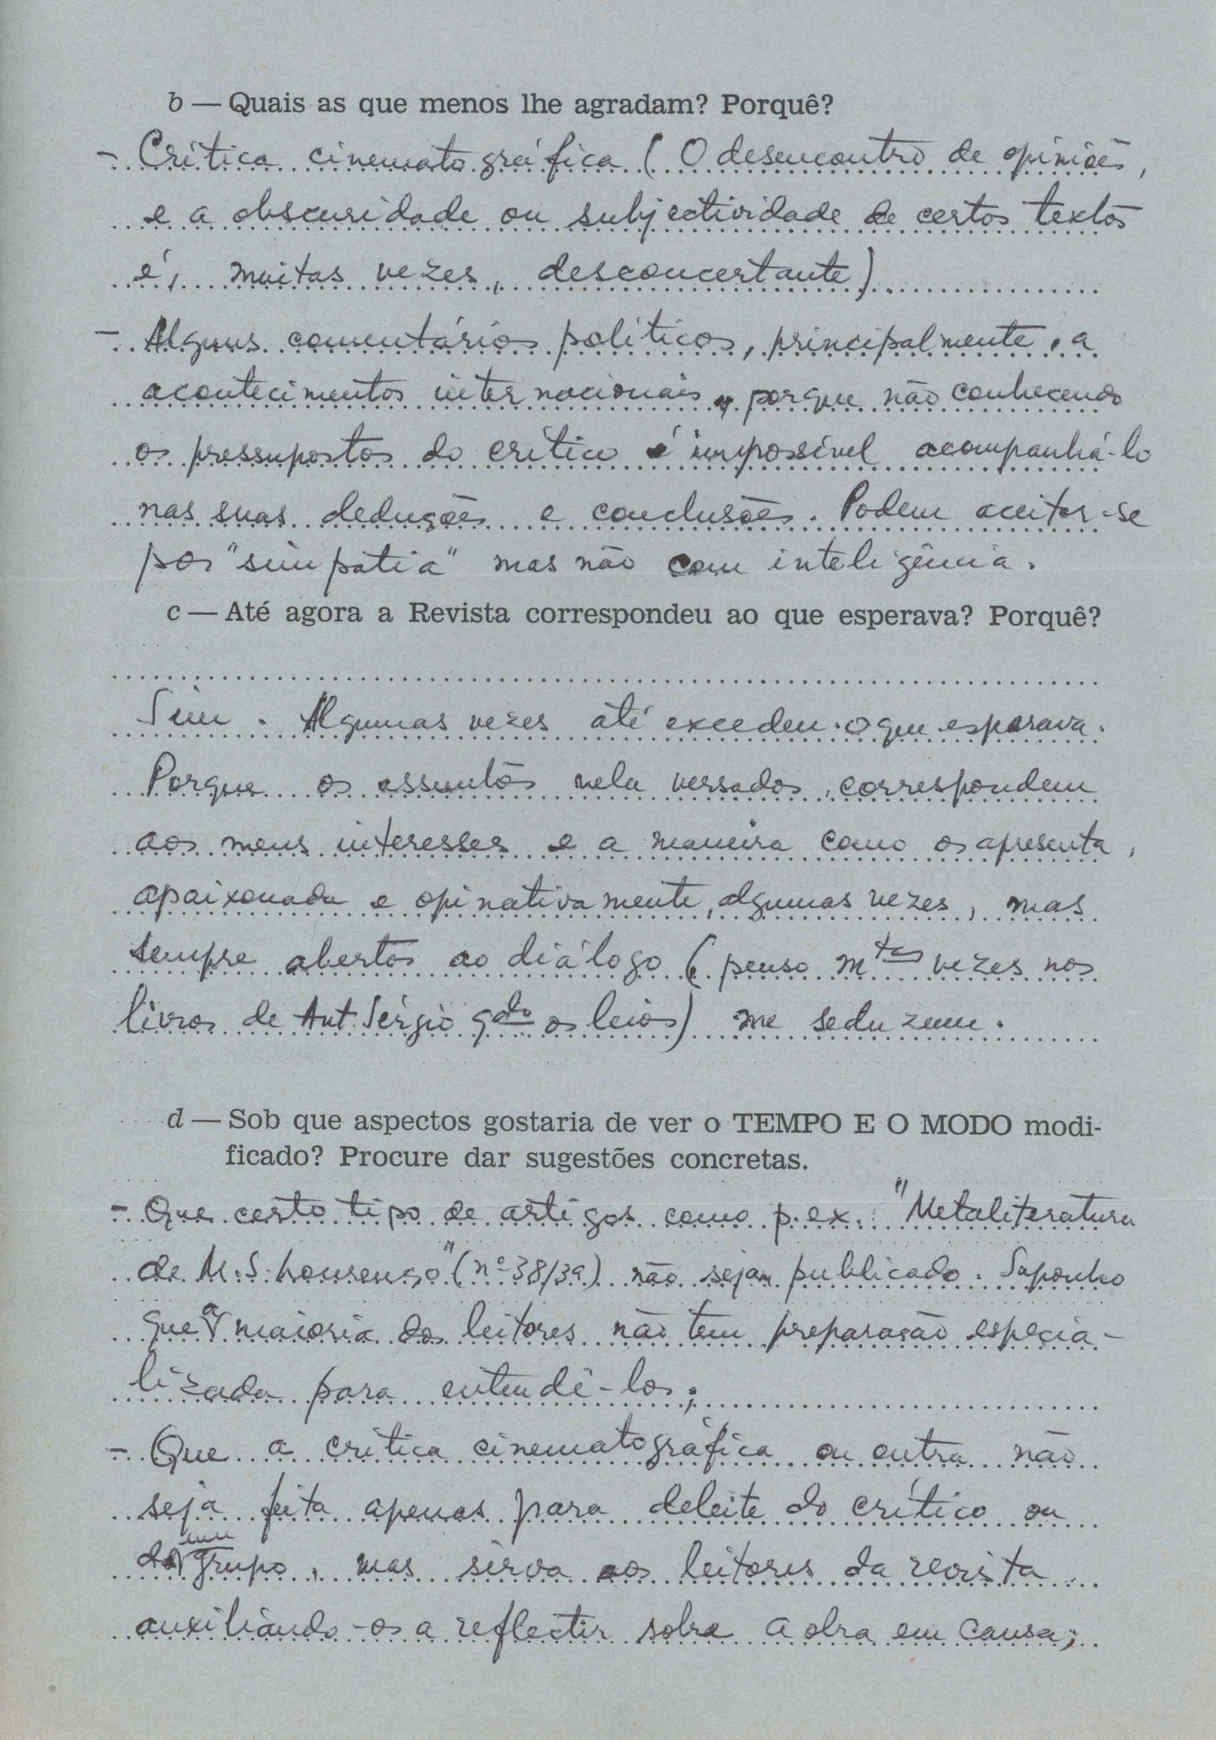 b — Quais as que menos lhe agradam? Porquê?
- Crítica cinematográfica (O desencontro de opiniões,
e a obscuridade ou subjectividade de certos textos
é, muitas vezes, desconcertante)
- Alguns comentários políticos, principalmente, a
acontecimentos internacionais, porque não conhecendo
os pressupostos do crítico é impossível acompanhá-lo
nas suas deduções e conclusões. Podem aceitar-se
por "simpatia" mas não com inteligência.
c — Até agora a Revista correspondeu ao que esperava? Porquê?
Sim. Algumas vezes até excedeu o que esperava.
Porque os assuntos nela versados, correspondem
aos meus interesses e a maneira como os apresenta,
apaixonada e opinativamente, algumas vezes, mas
sempre abertos ao diálogo (penso mtas vezes nos
livros de Ant. Sérgio qdo os leio) me seduzem.
d — Sob que aspectos gostaria de ver o TEMPO E O MODO modi-
ficado? Procure dar sugestões concretas.
- Que certo tipo de artigos como p. ex. "Metaliteratura
de M. S. Lourenço" (nº 38/39) não sejam publicado. Suponho
que a maioria dos leitores não tem preparação especia-
lizada para entendê-los;
- Que a crítica cinematográfica ou outra não
seja feita apenas para deleite do crítico ou
de um grupo, mas sirva aos leitores da revista
auxiliando-os a reflectir sobre a obra em causa;